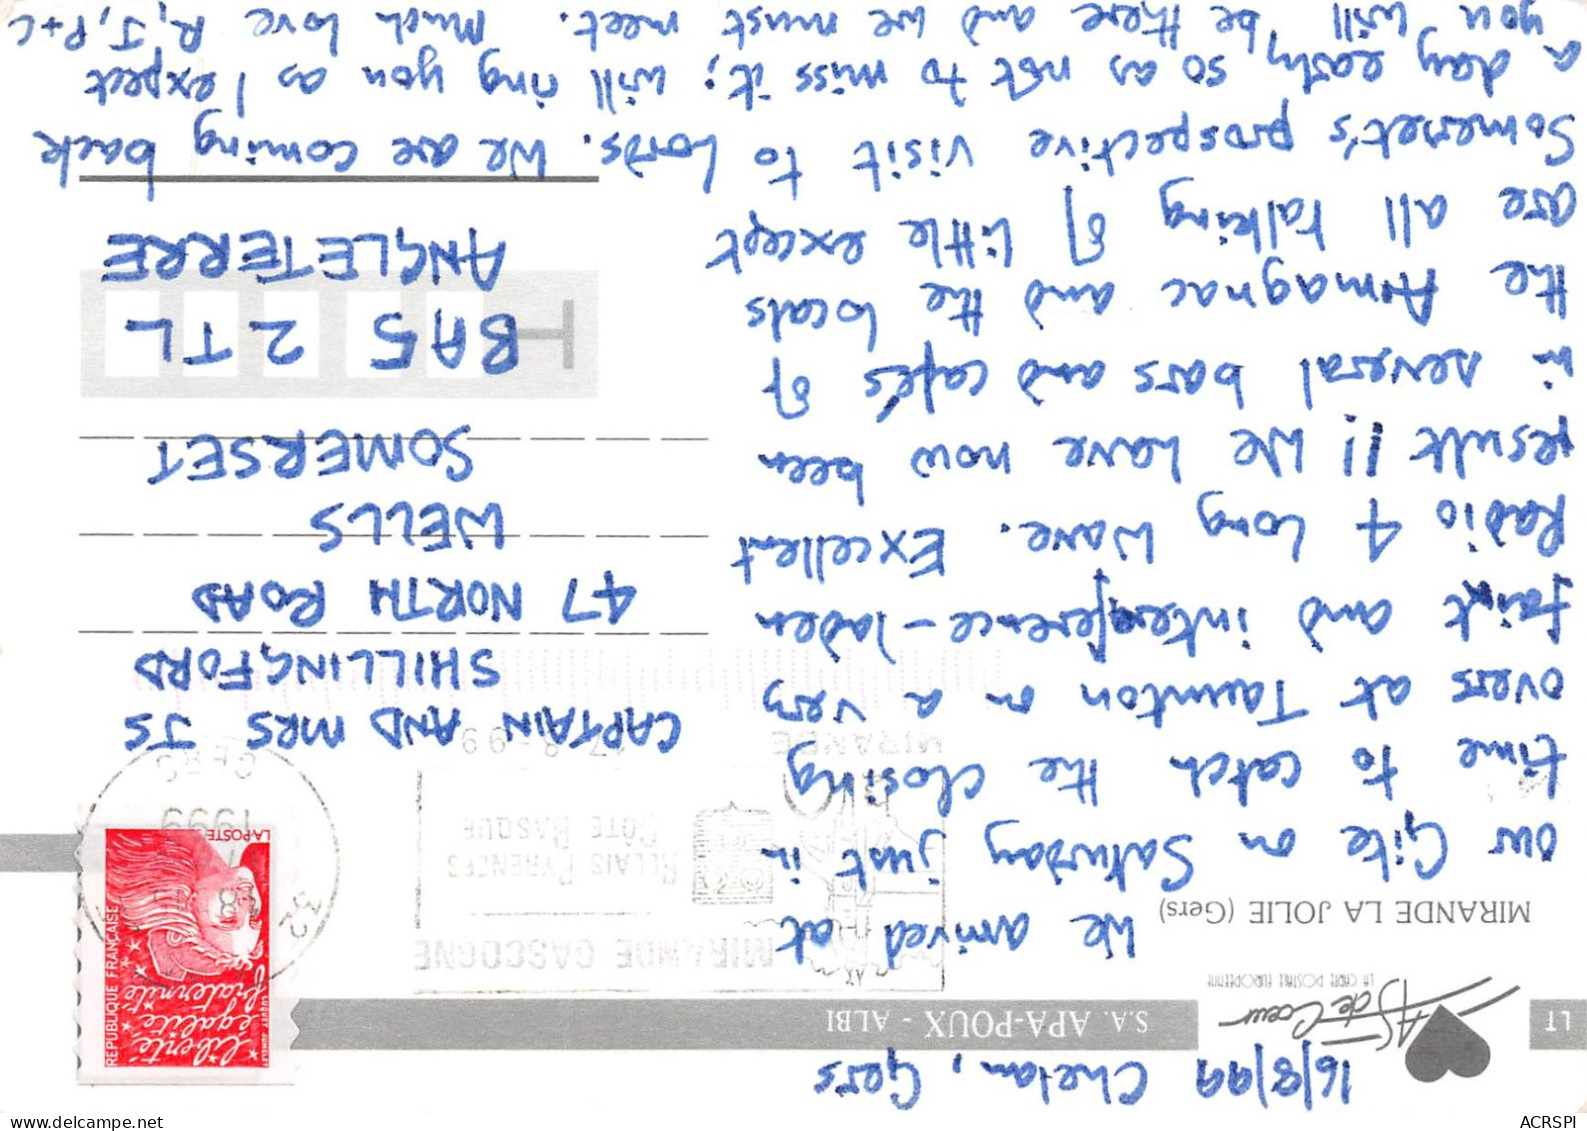 16/8/99 Chelan, Gers
LT
As de Cœur
LA CARTE POSTALE EUROPEENNE
S.A. APA-POUX - ALBI
MIRANDE LA JOLIE (Gers)
We arrived at
our Gite on Saturday just in
time to catch the closing
overs at Taunton on a very
faint and interference-laden
Radio 4 long wave. Excellent
result!! We have now been
in several bars and cafés of
the Armagnac and the locals
are all talking of little except
Somerset's prospective visit to Lords. We are coming back
a day early, so as not to miss it; will ring you as I expect
you will be there and we must meet. Much love R, J, P+C
REPUBLIQUE FRANÇAISE
liberté
égalité
fraternité
LA POSTE
MIRANDE GASCOGNE
RELAIS PYRENEES
COTE BASQUE
MIRANDE
17-8-99
32
1999
GERS
CAPTAIN AND MRS JS
SHILLINGFORD
47 NORTH ROAD
WELLS
SOMERSET
BA5 2TL
ANGLETERRE
ACRSPI